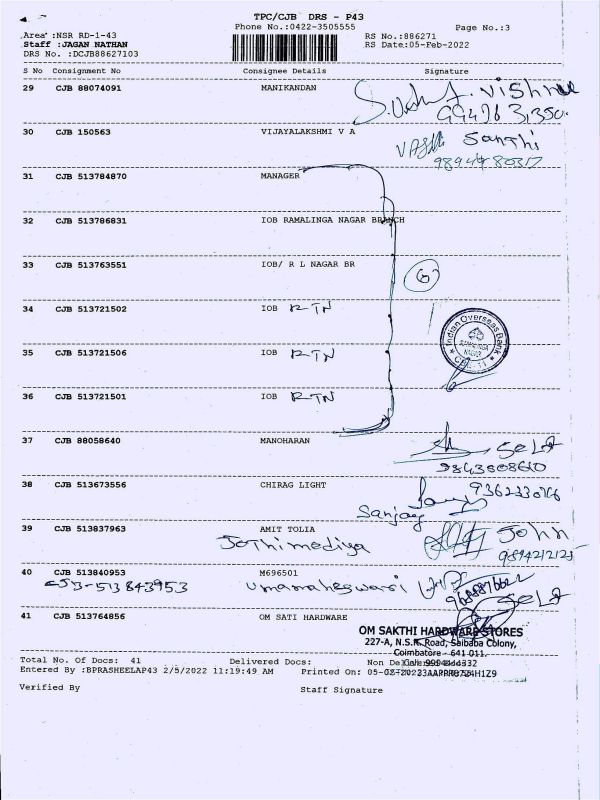 TPC/CJB DRS - P43
Phone No.:0422-3505555
Page No.:3
Area :NSR RD-1-43
RS No.:886271
Staff :JAGAN NATHAN
RS Date:05-Feb-2022
DRS No. :DCJB88627103
S No Consignment No Consignee Details Signature
29 CJB 88074091 MANIKANDAN
30 CJB 150563 VIJAYALAKSHMI V A Santhi
31 CJB 513784870 MANAGER
32 CJB 513786831 IOB RAMALINGA NAGAR BRANCH
33 CJB 513763551 IOB/ R L NAGAR BR
6
34 CJB 513721502 IOB RTN
Indian Overseas Bank
35 CJB 513721506 IOB RTN
36 CJB 513721501 IOB RTN
37 CJB 88058640 MANOHARAN Self
9843808610
38 CJB 513673556 CHIRAG LIGHT
Sanjay
39 CJB 513837963 AMIT TOLIA John
Jothimediya 9894212125
40 CJB 513840953 M696501
513843953 Umamaheswari
Self
41 CJB 513764856 OM SATI HARDWARE
OM SAKTHI HARDWARE STORES
227-A, N.S.R. Road, Saibaba Colony,
Coimbatore - 641 011.
Total No. Of Docs: 41 Delivered Docs: Non
Entered By :BPRASHEELAP43 2/5/2022 11:19:49 AM Printed On:
Verified By Staff Signature